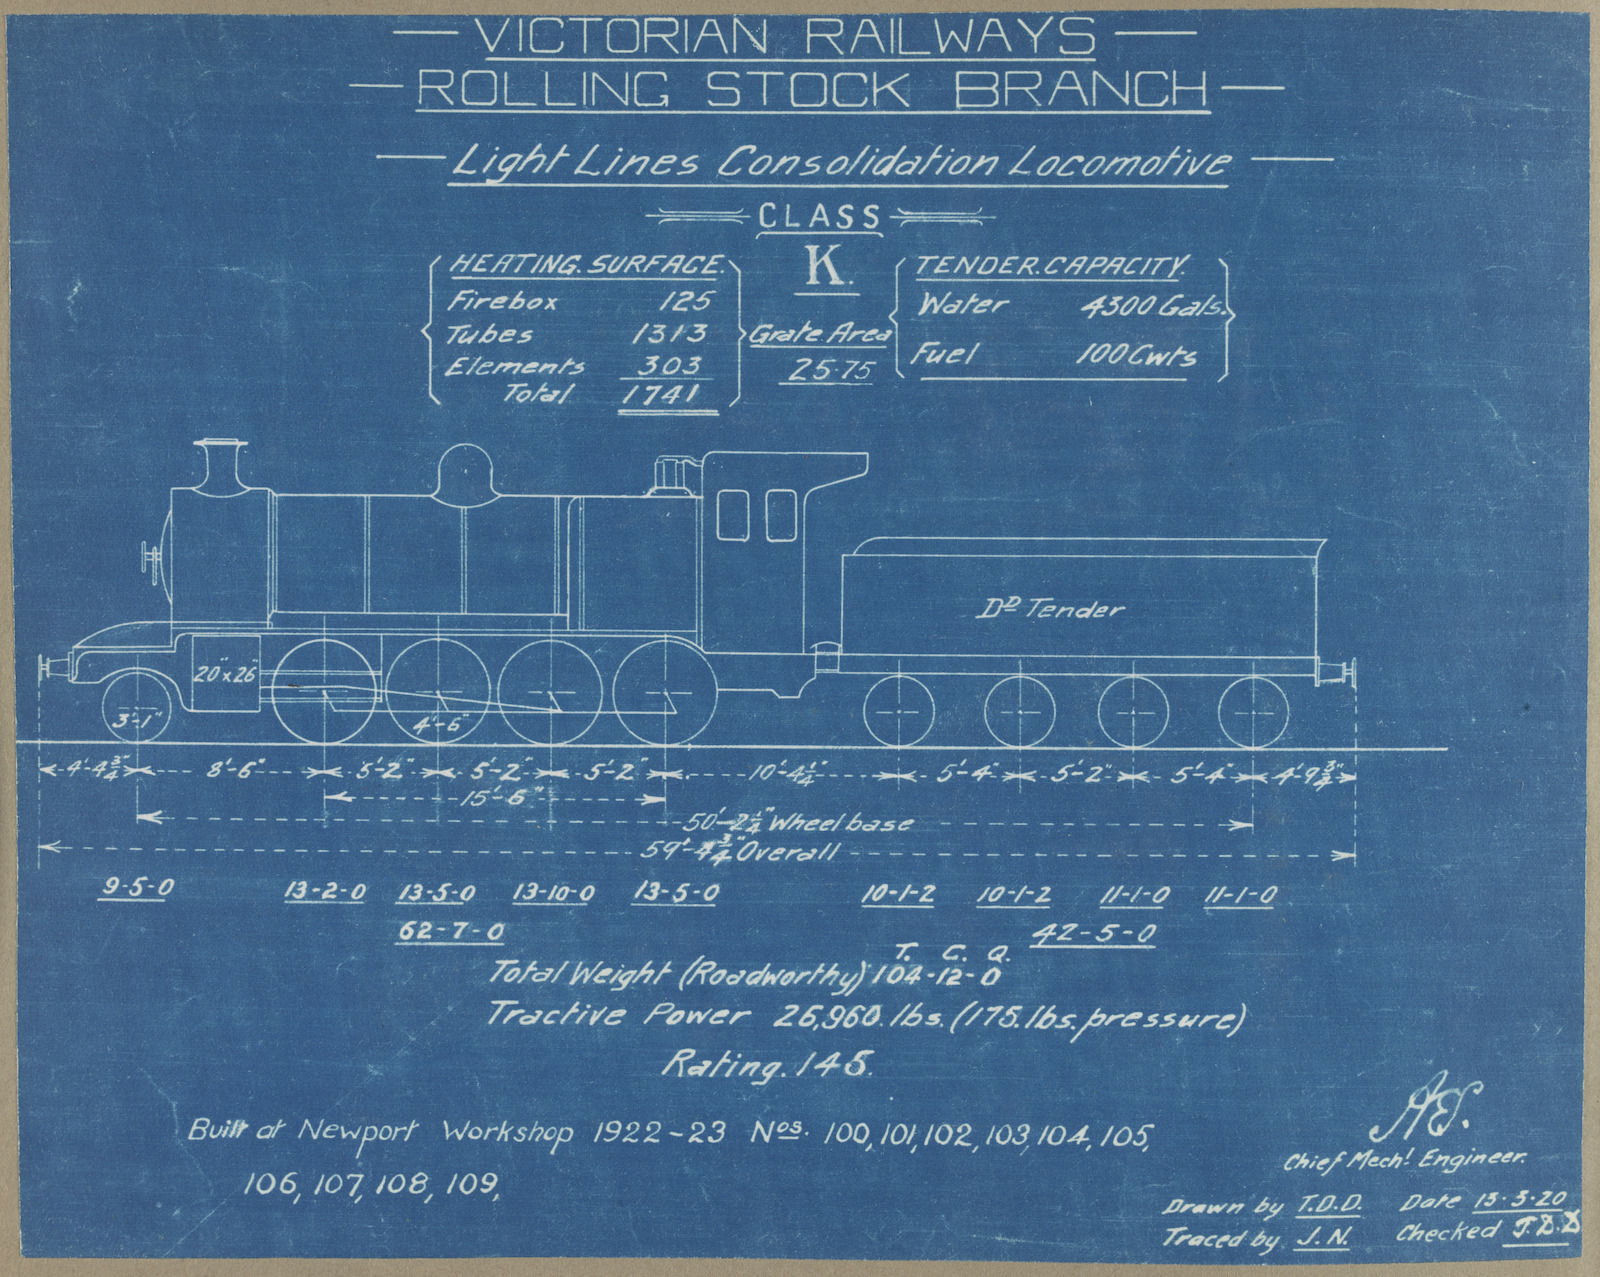 VICTORIAN RAILWAYS
ROLLING STOCK BRANCH
Light Lines Consolidation Locomotive
CLASS
K.
HEATING. SURFACE.
Firebox 125
Tubes 1313
Elements 303
Total 1741
Grate Area
25·75
TENDER. CAPACITY.
Water 4300 Gals.
Fuel 100 Cwts
Dᴰ Tender
20" x 26"
3'-1"
4'-6"
4'-4¾" 8'-6" 5'-2" 5'-2" 5'-2" 10'-4¼" 5'-4" 5'-2" 5'-4" 4'-9¾"
15'-6"
50'-2¼" Wheelbase
59'-4¾" Overall
9-5-0 13-2-0 13-5-0 13-10-0 13-5-0 10-1-2 10-1-2 11-1-0 11-1-0
62-7-0 42-5-0
T. C. Q.
Total Weight (Roadworthy) 104-12-0
Tractive Power 26,960. lbs. (175. lbs. pressure)
Rating. 145.
Built at Newport Workshop 1922-23 Nos. 100, 101, 102, 103, 104, 105,
106, 107, 108, 109,
Chief Mechl. Engineer.
Drawn by T.D.D. Date 13·3·20
Traced by J.N. Checked T.D.D